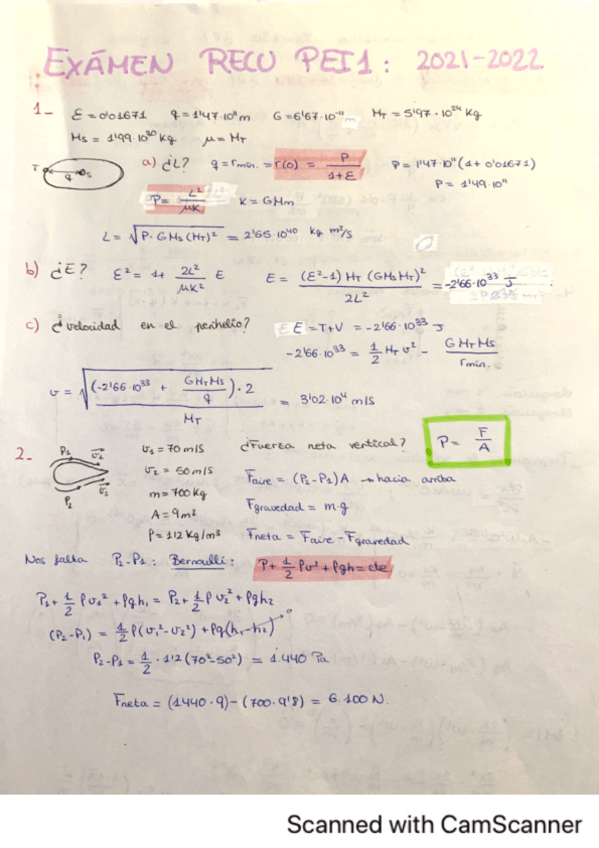 EXÁMEN RECU PEI1: 2021-2022
1- Ɛ = 0'01671 q = 1'47·10¹¹ m G = 6'67·10⁻¹¹ M_T = 5'97·10²⁴ Kg
M_S = 1'99·10³⁰ Kg μ = M_T
T q S a) ¿L? q = r_min. = r(0) = P/(1+Ɛ) P = 1'47·10¹¹ (1+0'01671)
P = 1'49·10¹¹
P = L²/μK K = GMm
L = √(P·GM_S(M_T)²) = 2'65·10⁴⁰ kg m²/s
b) ¿E? Ɛ² = 1 + 2L²/μK² E E = (Ɛ²-1) M_T (GM_SM_T)²/2L² = -2'66·10³³ J
c) ¿velocidad en el perihelio? E = T+V = -2'66·10³³ J
-2'66·10³³ = 1/2 M_T v² - G M_T M_S/r_min.
v = √((-2'66·10³³ + GM_TM_S/q)·2/M_T) = 3'02·10⁴ m/s
2- P₁ v₁ v₁ = 70 m/s ¿Fuerza neta vertical? P = F/A
P₂ v₂ v₂ = 50 m/s F_aire = (P₂-P₁)A → hacia arriba
m = 700 kg F_gravedad = m·g
A = 9 m²
ρ = 1'2 Kg/m³ F_neta = F_aire - F_gravedad
Nos falta P₂-P₁: Bernoulli: P + 1/2 ρv² + ρgh = cte
P₁ + 1/2 ρv₁² + ρgh₁ = P₂ + 1/2 ρ v₂² + ρgh₂
(P₂-P₁) = 1/2 ρ(v₁²-v₂²) + ρg(h₁-h₂) → 0
P₂-P₁ = 1/2 · 1'2 (70²-50²) = 1.440 Pa
F_neta = (1440·9) - (700·9'8) = 6.100 N.
Scanned with CamScanner